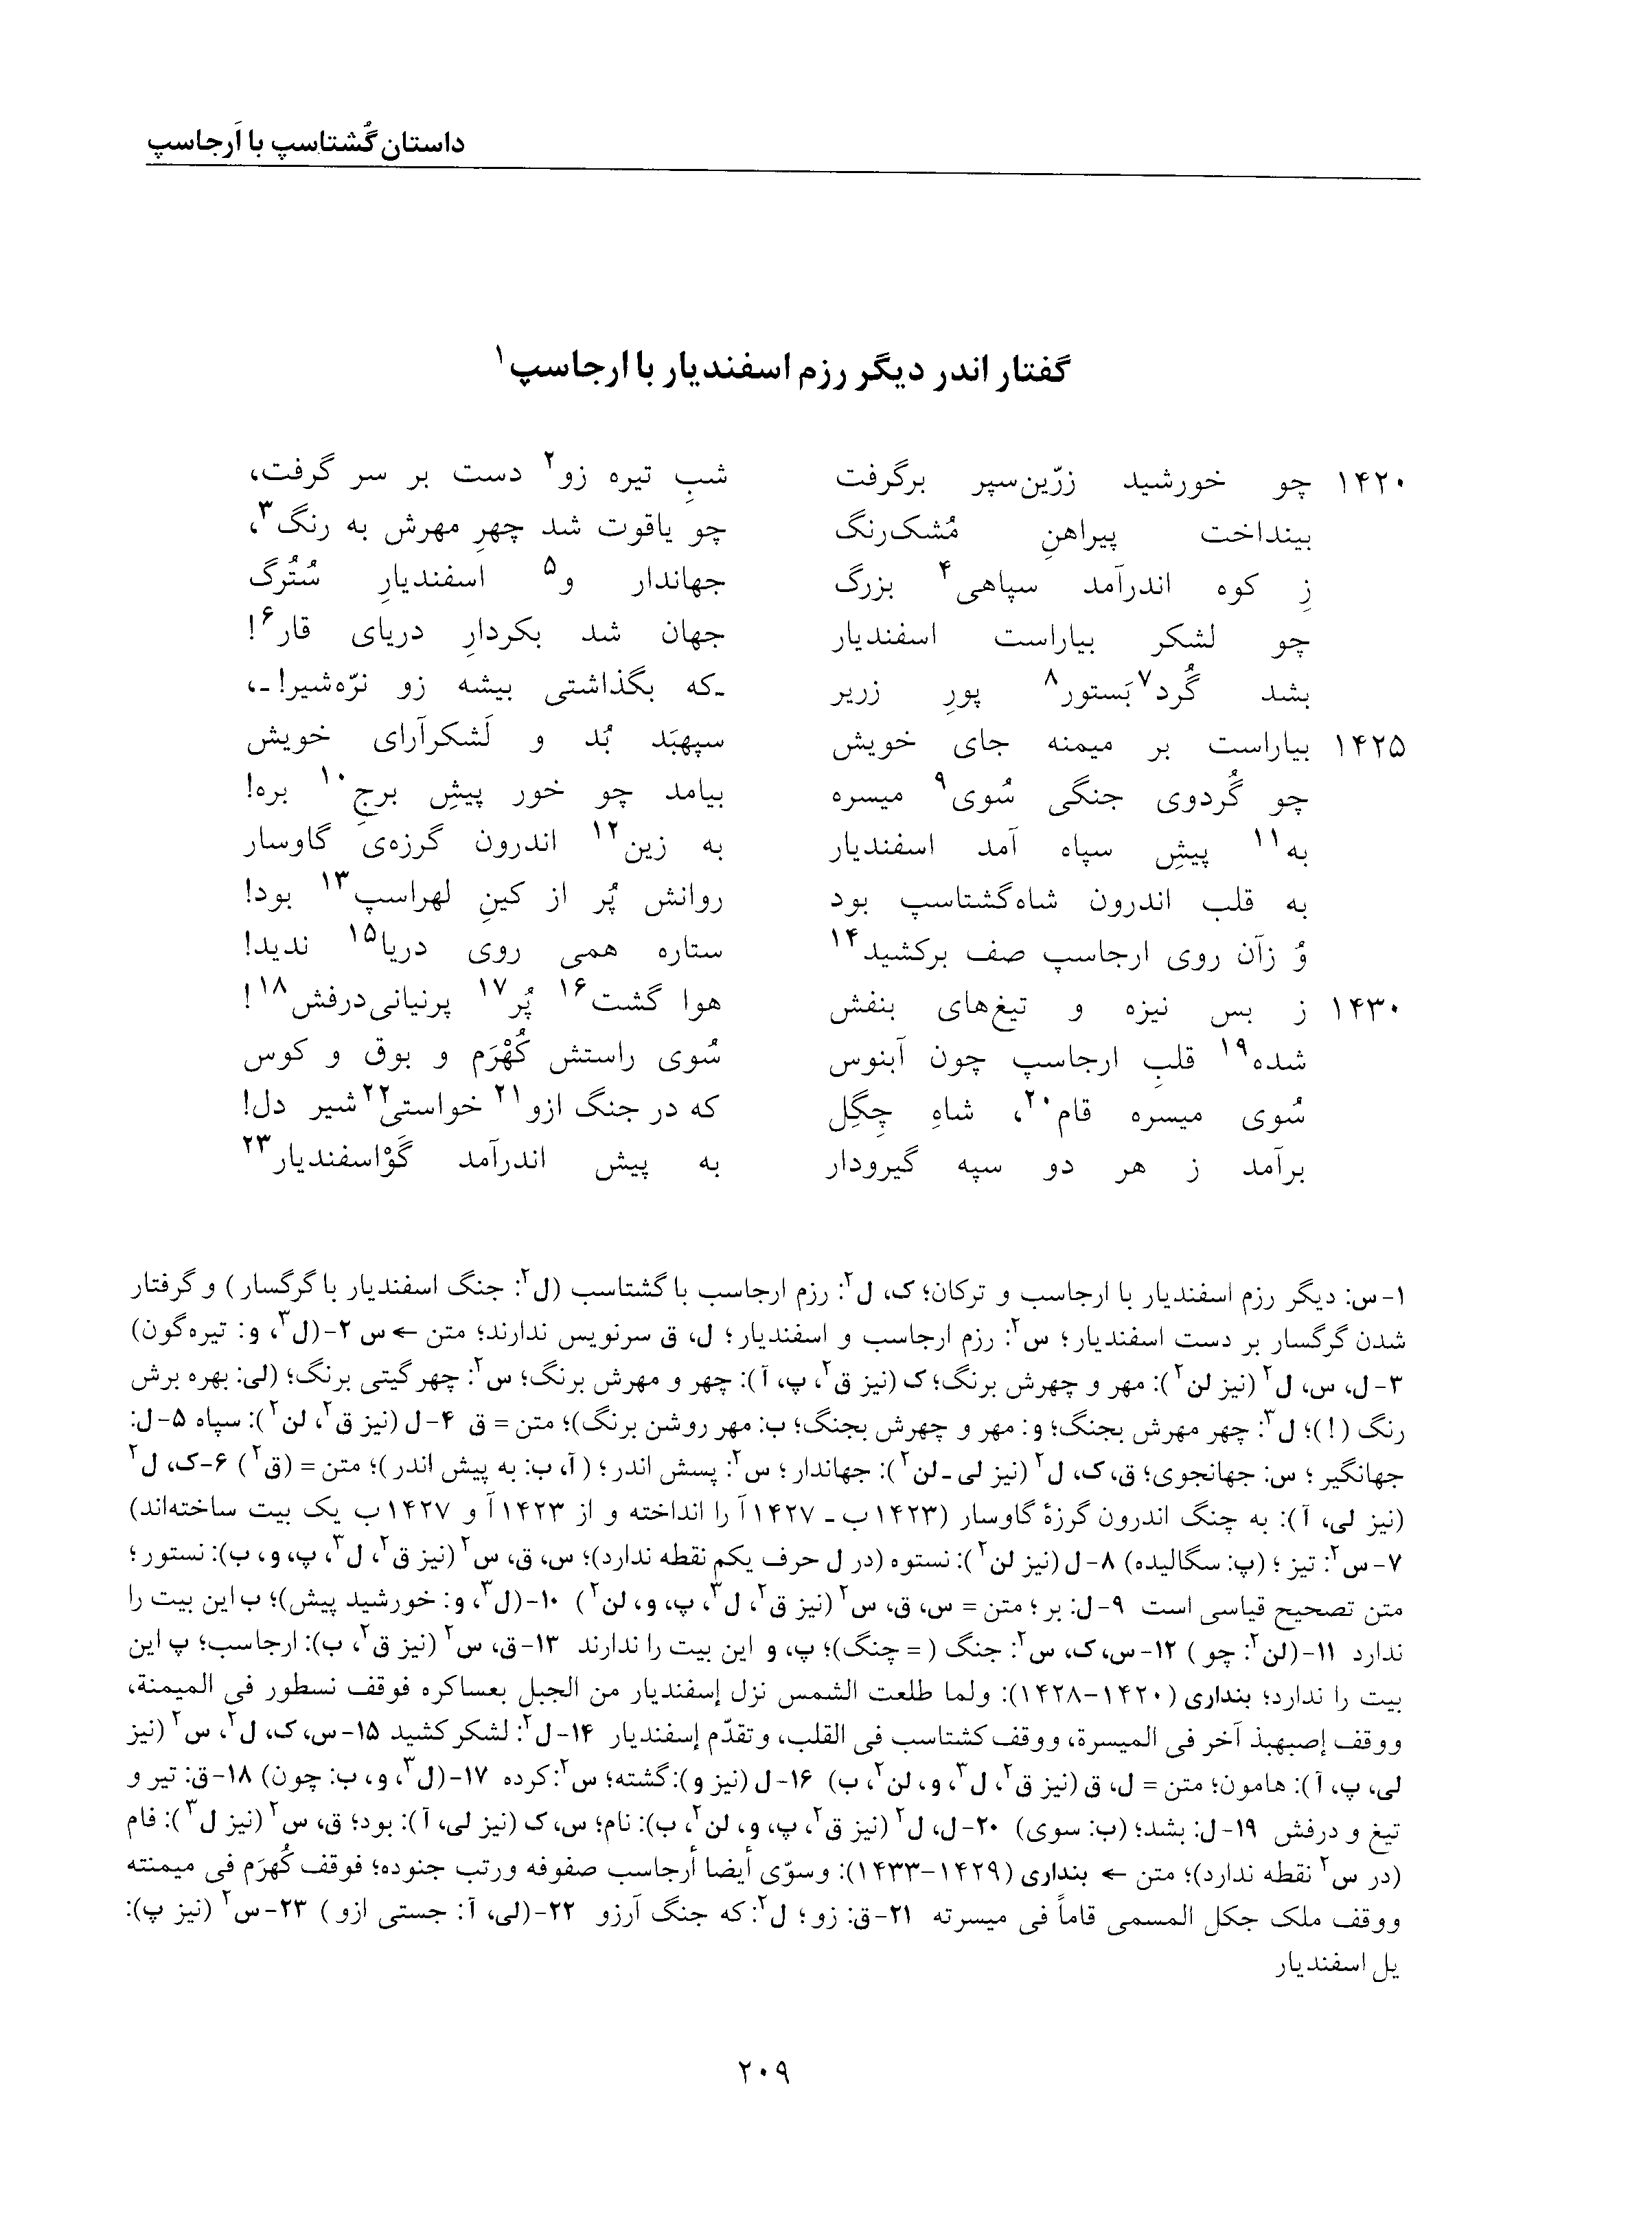 داستان گُشتاسپ با اَرجاسپ
گفتار اندر دیگر رزم اسفندیار با ارجاسپ۱
۱۴۲۰ چو خورشید زرّین‌سپر برگرفت شبِ تیره زو۲ دست بر سر گرفت،
بینداخت پیراهنِ مُشک‌رنگ چو یاقوت شد چهرِ مهرش به رنگ۳،
زِ کوه اندرآمد سپاهی۴ بزرگ جهاندار و۵ اسفندیارِ سُتُرگ
چو لشکر بیاراست اسفندیار جهان شد بکردارِ دریای قار۶!
بشد گُرد۷ بَستور۸ پورِ زریر ـ‌که بگذاشتی بیشه زو نرّه‌شیر!ـ،
۱۴۲۵ بیاراست بر میمنه جای خویش سپهبَد بُد و لَشکرآرای خویش
چو گُردوی جنگی سُوی۹ میسره بیامد چو خور پیشِ برجِ۱۰ بره!
به۱۱ پیشِ سپاه آمد اسفندیار به زین۱۲ اندرون گرزه‌ی گاوسار
به قلب اندرون شاه‌گشتاسپ بود روانش پُر از کینِ لهراسپ۱۳ بود!
وُ زآن روی ارجاسپ صف برکشید۱۴ ستاره همی روی دریا۱۵ ندید!
۱۴۳۰ ز بس نیزه و تیغ‌های بنفش هوا گشت۱۶ پُر۱۷ پرنیانی‌درفش۱۸!
شده۱۹ قلبِ ارجاسپ چون آبنوس سُوی راستش کُهْرَم و بوق و کوس
سُوی میسره قام۲۰، شاهِ چِگِل که در جنگ ازو۲۱ خواستی۲۲ شیر دل!
برآمد ز هر دو سپه گیرودار به پیش اندرآمد گَوْاسفندیار۲۳
۱-س: دیگر رزم اسفندیار با ارجاسب و ترکان؛ ک، ل۲: رزم ارجاسب با گشتاسب (ل۲: جنگ اسفندیار با گرگسار) و گرفتار
شدن گرگسار بر دست اسفندیار؛ س۲: رزم ارجاسب و اسفندیار؛ ل، ق سرنویس ندارند؛ متن ← س ۲-(ل۳، و: تیره‌گون)
۳-ل، س، ل۲ (نیز لن۲): مهر و چهرش برنگ؛ ک (نیز ق۲، پ، آ): چهر و مهرش برنگ؛ س۲: چهر گیتی برنگ؛ (لی: بهره برش
رنگ (!)؛ ل۳: چهر مهرش بجنگ؛ و: مهر و چهرش بجنگ؛ ب: مهر روشن برنگ)؛ متن = ق ۴-ل (نیز ق۲، لن۲): سپاه ۵-ل:
جهانگیر؛ س: جهانجوی؛ ق، ک، ل۲ (نیز لی ـ لن۲): جهاندار؛ س۲: پسش اندر؛ (آ، ب: به پیش اندر)؛ متن = (ق۲) ۶-ک، ل۲
(نیز لی، آ): به چنگ اندرون گرزهٔ گاوسار (۱۴۲۳ب ـ ۱۴۲۷آ را انداخته و از ۱۴۲۳آ و ۱۴۲۷ب یک بیت ساخته‌اند)
۷-س۲: تیز؛ (پ: سگالیده) ۸-ل (نیز لن۲): نستوه (در ل حرف یکم نقطه ندارد)؛ س، ق، س۲ (نیز ق۲، ل۳، پ، و، ب): نستور؛
متن تصحیح قیاسی است ۹-ل: بر؛ متن = س، ق، س۲ (نیز ق۲، ل۳، پ، و، لن۲) ۱۰-(ل۳، و: خورشید پیش)؛ ب این بیت را
ندارد ۱۱-(لن۲: چو) ۱۲-س، ک، س۲: جنگ (= چنگ)؛ پ، و این بیت را ندارند ۱۳-ق، س۲ (نیز ق۲، ب): ارجاسب؛ پ این
بیت را ندارد؛ بنداری (۱۴۲۰-۱۴۲۸): ولما طلعت الشمس نزل إسفندیار من الجبل بعساکره فوقف نسطور فی المیمنة،
ووقف إصبهبذ آخر فی المیسرة، ووقف کشتاسب فی القلب، وتقدّم إسفندیار ۱۴-ل۲: لشکر کشید ۱۵-س، ک، ل۲، س۲ (نیز
لی، پ، آ): هامون؛ متن = ل، ق (نیز ق۲، ل۳، و، لن۲، ب) ۱۶-ل (نیز و): گشته؛ س۲: کرده ۱۷-(ل۳، و، ب: چون) ۱۸-ق: تیر و
تیغ و درفش ۱۹-ل: بشد؛ (ب: سوی) ۲۰-ل، ل۲ (نیز ق۲، پ، و، لن۲، ب): نام؛ س، ک (نیز لی، آ): بود؛ ق، س۲ (نیز ل۳): فام
(در س۲ نقطه ندارد)؛ متن ← بنداری (۱۴۲۹-۱۴۳۳): وسوّی أیضا أرجاسب صفوفه ورتب جنوده؛ فوقف کُهرَم فی میمنته
ووقف ملک جکل المسمی قاماً فی میسرته ۲۱-ق: زو؛ ل۲: که جنگ آرزو ۲۲-(لی، آ: جستی ازو) ۲۳-س۲ (نیز پ):
یل اسفندیار
۲۰۹